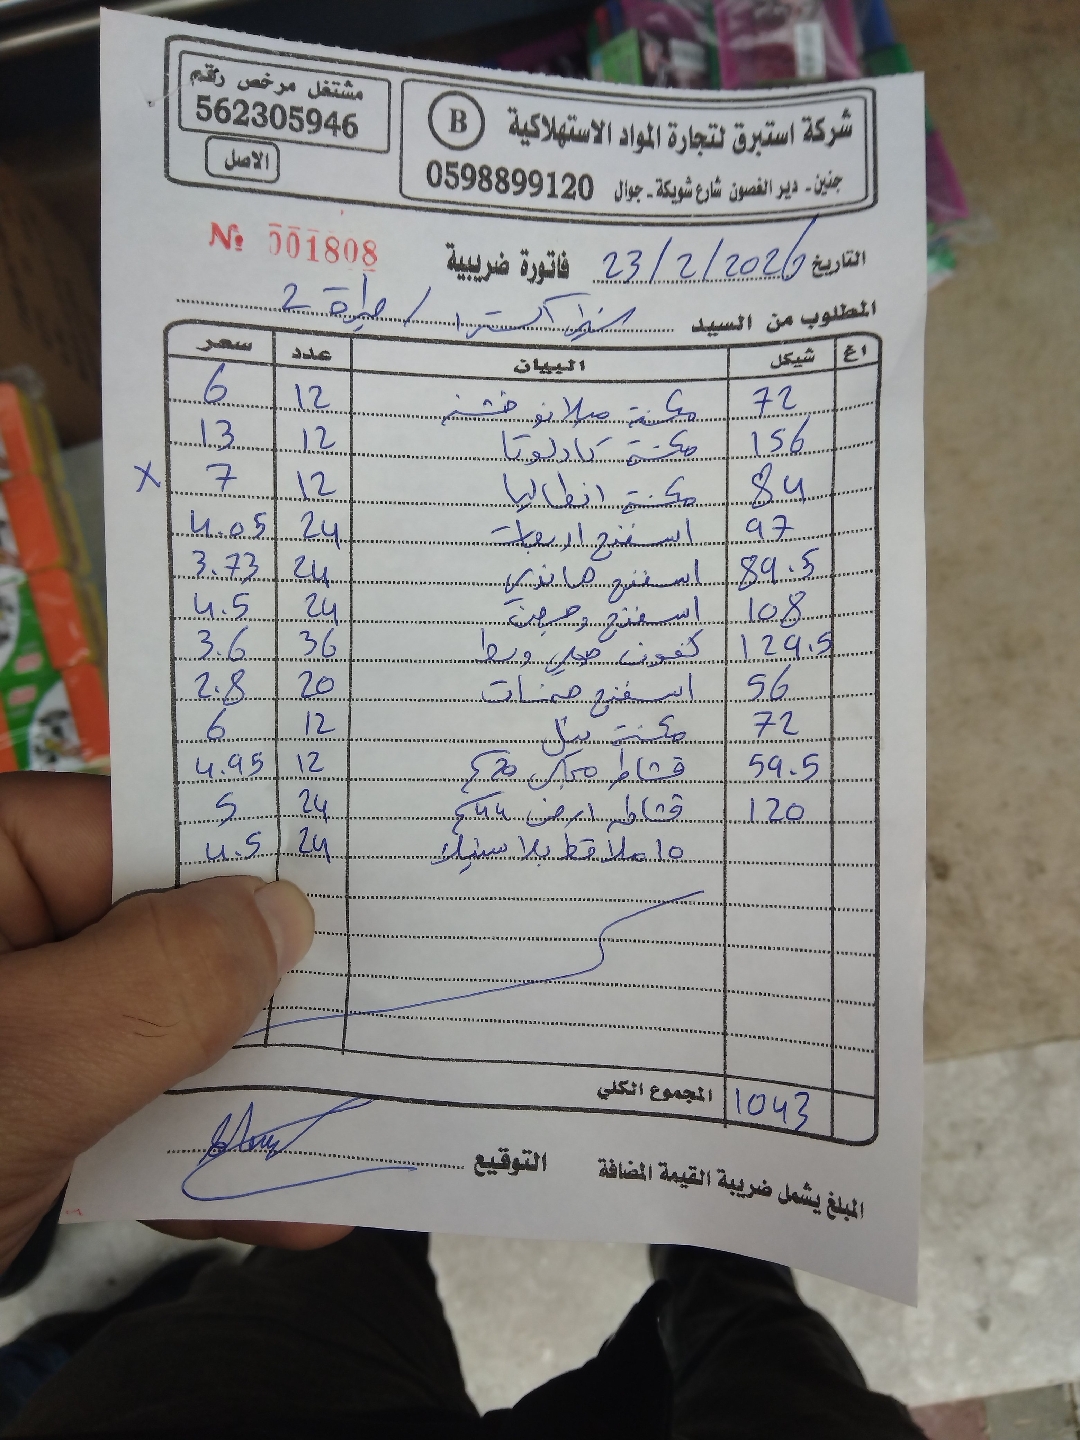 شركة استبرق لتجارة المواد الاستهلاكية
B
جنين - دير الغصون شارع شويكة - جوال 0598899120
مشتغل مرخص رقم
562305946
الاصل
التاريخ 23/2/2026 فاتورة ضريبية № 001808
المطلوب من السيد اكسترا / 2
اغ شيكل البيان عدد سعر
72 مكنسة ميلانو خشنة 12 6
156 مكنسة كادلوتا 12 13
84 مكنسة انطاليا 12 7 X
97 اسفنج 24 4.05
89.5 اسفنج 24 3.73
108 اسفنج 24 4.5
129.5 كفوف وسط 36 3.6
56 اسفنج 20 2.8
72 مكنسة 12 6
59.5 قشاط 12 4.95
120 قشاط ارض 44 24 5
10 ملاقط بلاستيك 24 4.5
المجموع الكلي 1043
المبلغ يشمل ضريبة القيمة المضافة التوقيع